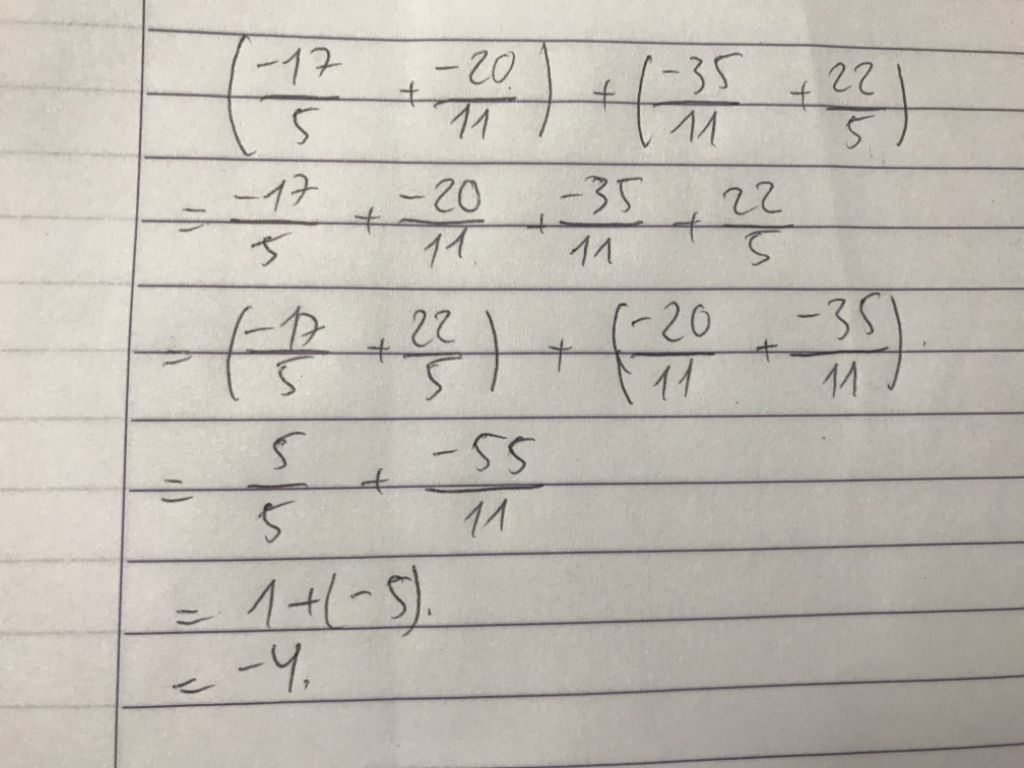 (-17/5 + -20/11) + (-35/11 + 22/5)
= -17/5 + -20/11 + -35/11 + 22/5
= (-17/5 + 22/5) + (-20/11 + -35/11).
= 5/5 + -55/11
= 1+(-5).
= -4.